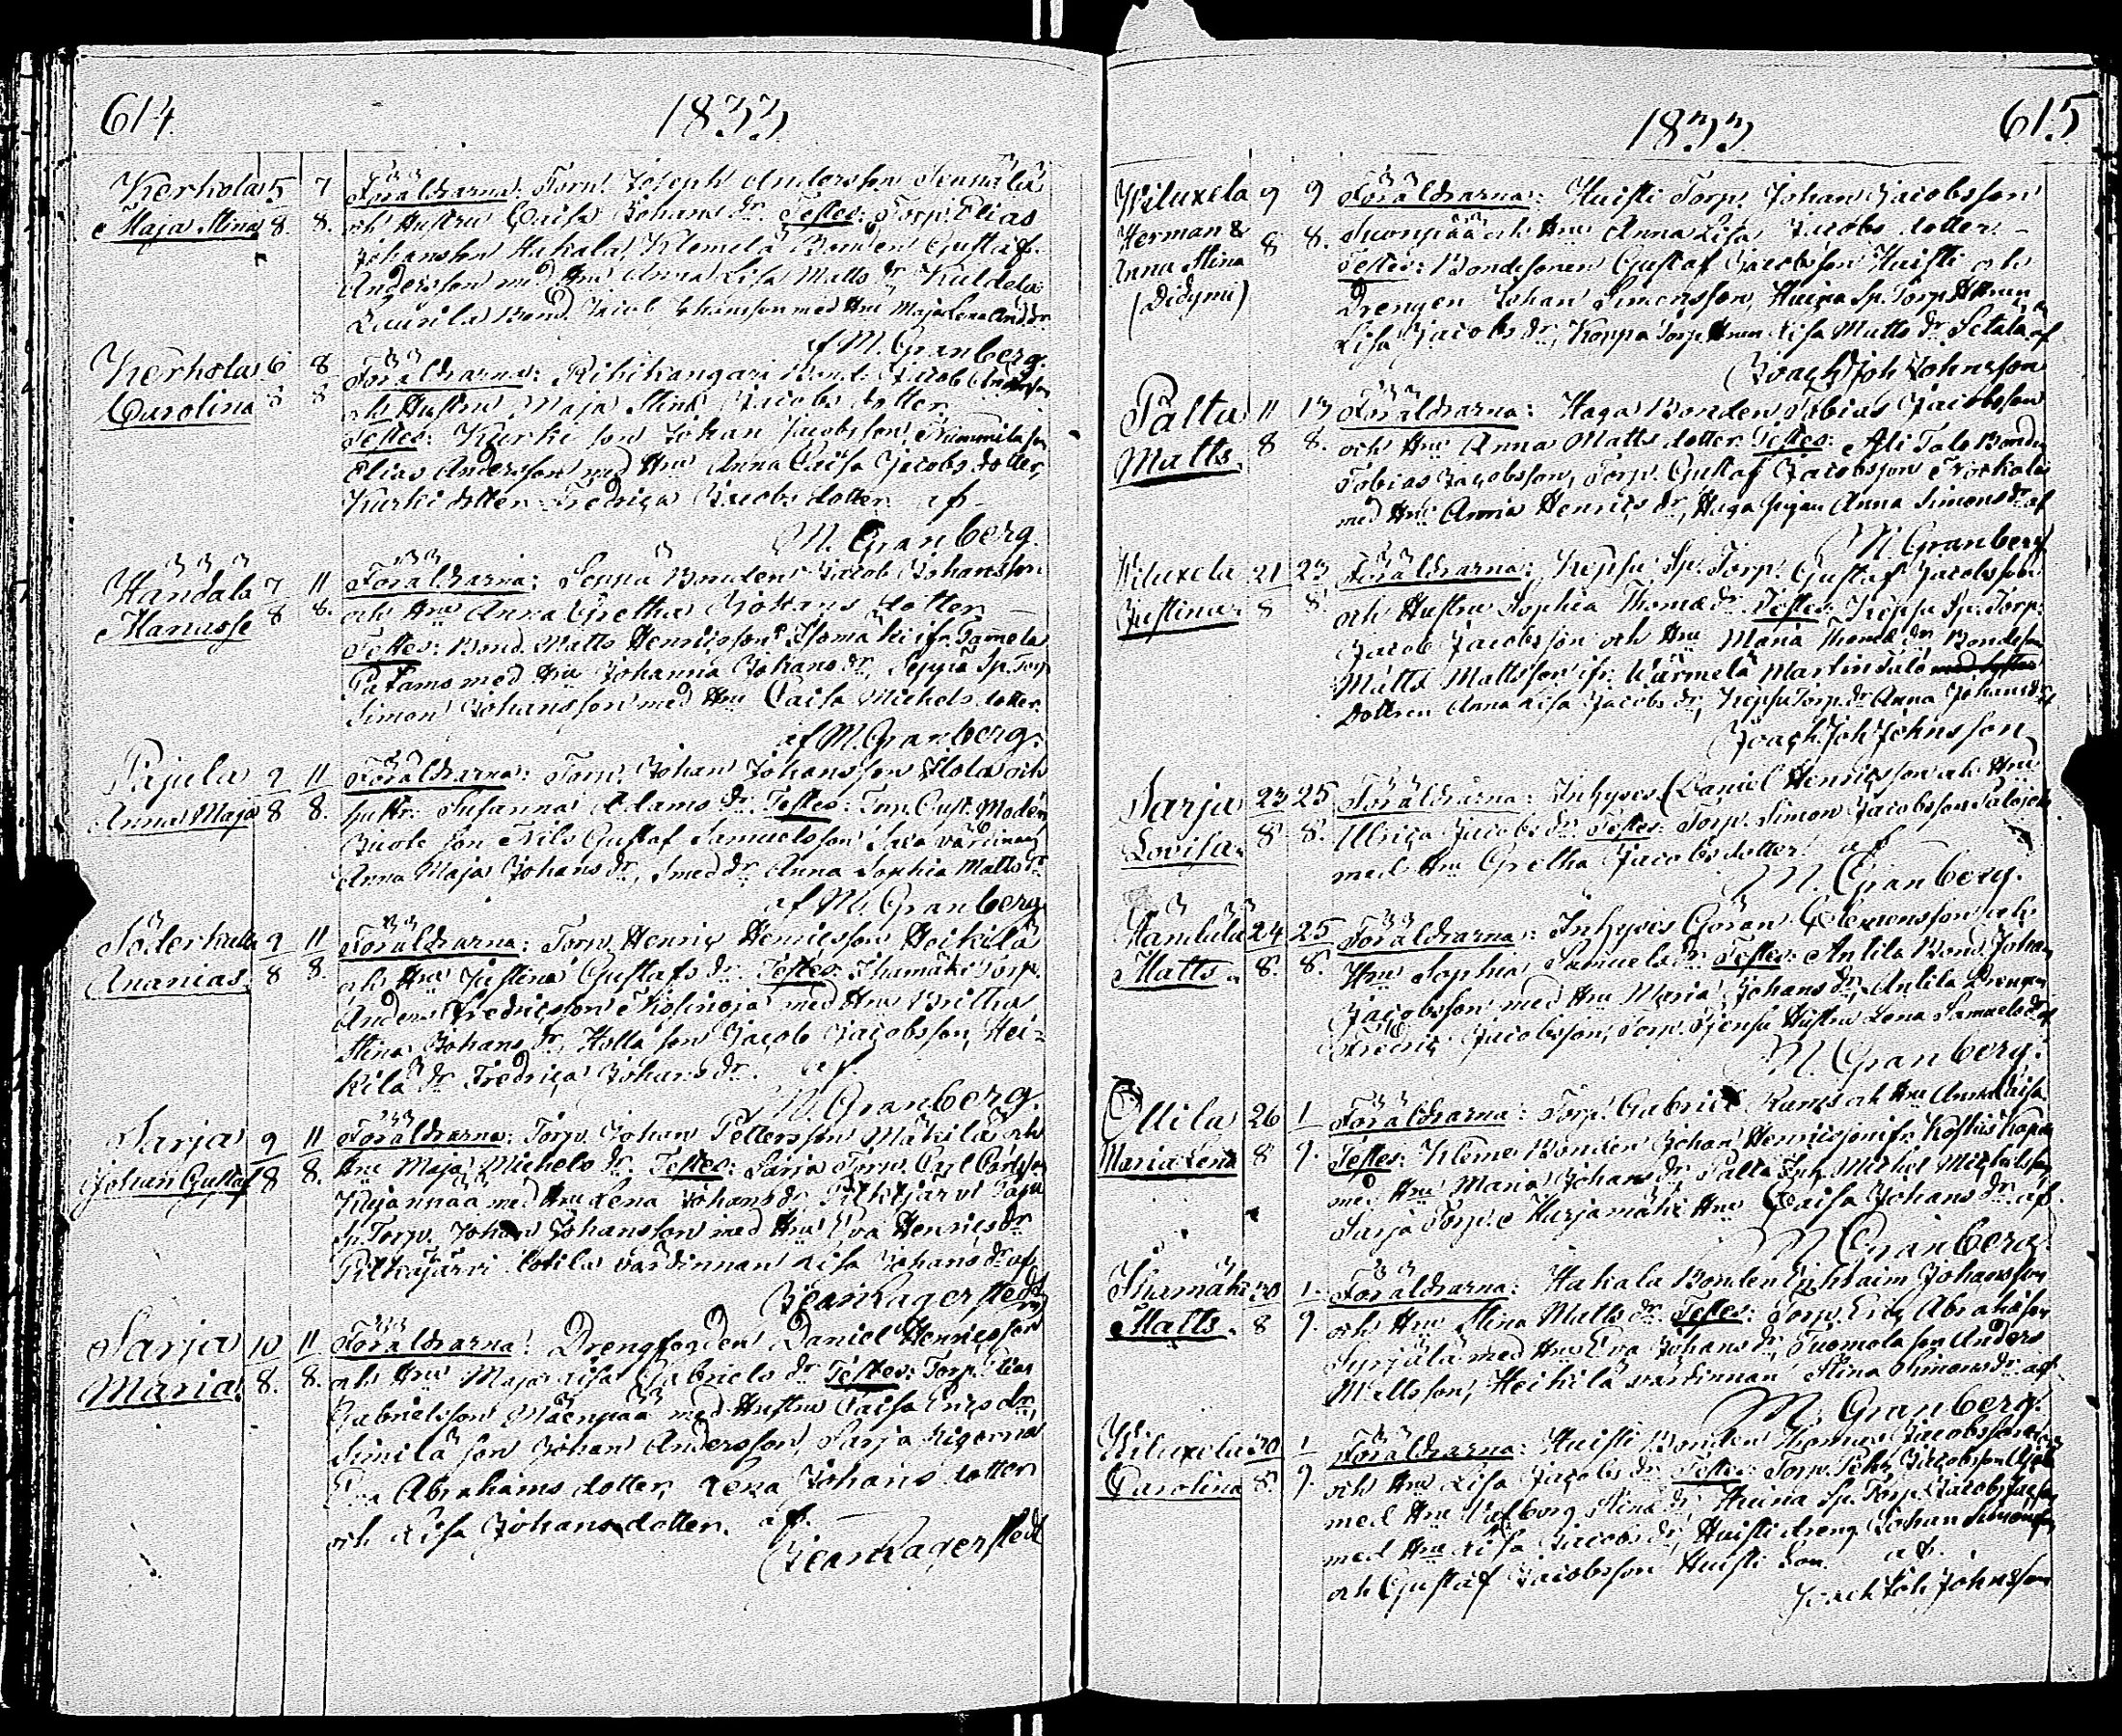 614. 1833
Kerkola 5 7 Föräldrarna: Torp. Joseph Andersson Sennälä
Maja Stina 8. 8. och Hustru Caisa Johans dr. Testes: Torp. Elias
Johansson Hakala, Klemelä Bonden Gustaf
Andersson med Hu Anna Lisa Matts dr Kuldela
Laurila Bond. Jacob Johansson med Hu Maja Lena And. dr
af M. Granberg.
Kerkola 6 8 Föräldrarna: Rihikangari Bond. Jacob Andersson
Carolina 8 8 och Hustru Maja Stina Jacobs dotter
Testes: Kurki son Johan Jacobsson, Nummila son
Elias Andersson med Hu Anna Caisa Jacobs dotter,
Kurki dotter Fredrica Jacobs dotter af
M. Granberg.
Händälä 7 11 Föräldrarna: Seppä Bonden Jacob Johansson
Manasse 8 8. och Hu Anna Gretha Johans dotter
Testes: Bond. Matts Henricsson Isomäki ifr. Tammela
med Hu Johanna Johans dr, Seppä Sp. Torp
Simon Johansson med Hu Caisa Michels dotter
af M. Granberg.
Pajula 9 11 Föräldrarna: Torp. Johan Johansson Hola och
Anna Maja 8 8. hustr. Susanna Adams dr. Testes: Torp. Gust. Modén
son Nils Gustaf Samuelsson värdinnan
Anna Maja Johans dr, Smed dr. Anna Sophia Matts dr
af M. Granberg
Söderkulla 9 11 Föräldrarna: Torp. Henric Henricsson Heikilä
Ananias. 8 8. och Hu Justina Gustafs dr. Testes: Ihamäki Torp.
Anders Fredricsson med Hu Britha
Stina Johans dr, Holla son Jacob Jacobsson, Hei-
kilä dr Fredrica Johans dr. af
M. Granberg.
Sarja 9 11 Föräldrarna: Torp. Johan Pettersson Mäkilä och
Johan Gustaf 8 8. Hu Maja Michels dr. Testes: Sarja Torp. Carl Carlsson
Kujanpää med Hu Lena Johans dr, Pitkäjärvi
Sp. Torp. Johan Johansson med Hu Eva Henrics dr
Pitkäjärvi värdinnan Lisa Johans dr af
Jean Lagerstedt
Sarja 10 11 Föräldrarna: Drengfogden Daniel Henricsson
Maria. 8. 8. och Hu Maja Lisa Gabriels dr Testes: Torp. Elias
Gabrielsson Mäenpää med Hustru Caisa Erics dr,
Similä son Johan Andersson, Sarja Pigorna
Eva Abrahams dotter, Lena Johans dotter
och Lisa Johans dotter. af
Jean Lagerstedt
1833 615
Wiluxela 9 9 Föräldrarna: Huisti Torp. Johan Jacobsson
Herman & 8 8. Suonpää och Hu Anna Lisa Jacobs dotter
Anna Stina Testes: Bondsonen Gustaf Jacobsson Huisti och
(Didymi) Drengen Johan Simonsson, Huina Sp. Torp. Hustrun
Lisa Jacobs dr, Koppa Torp. Hrun Lisa Matts dr Setala af
Joach Joh Johnsson
Palta 11 13 Föräldrarna: Haga Bonden Tobias Jacobsson
Matts. 8 8. och Hu Anna Matts dotter Testes: Ali Talo Bonden
Tobias Jacobsson, Torp. Gustaf Jacobsson
med Hu Anna Henrics dr, Haga pigan Anna Simons dr af
M. Granberg
Wiluxela 21 23 Föräldrarna: Keppu Sp. Torp. Gustaf Jacobsson
Justina. 8 8. och Hustru Sophia Thomæ dr. Testes: Keppu Sp. Torp.
Jacob Jacobsson och Hu Maria Thomæ dr Bondeson
Matts Mattsson ifr. Wärmelä Martin talo
Dottren Anna Lisa Jacobs dr, Keppu Torp. dr Anna Johans dr
Joach Joh Johnsson
Sarja 23 25 Föräldrarna: Inhyses Daniel Henricsson och Hu
Lovisa. 8 8. Ulrica Jacobs dr. Testes: Torp. Simon Jacobsson
med Hu Gretha Jacobs dotter af
M. Granberg.
24 25 Föräldrarna: Inhyses Göran Clemensson och
Matts. 8. 8. Hu Sophia Samuels dr. Testes: Anlila Bond. Johan
Jacobsson med Hu Maria Johans dr, Anlila Drengen
Fredric Jacobsson, Torp. Hustru Lena Samuels dr af
M. Granberg.
Ottila 26 1 Föräldrarna: Torp. Gabriel och Hu Anna Caisa
Maria Lena 8 9. Testes: Kleme Bonden Johan Henricsson ifr.
med Hu Maria Johans dr, Palta Inh. Michel Michelsson
Sarja Torp. Hurjamäki Hu Caisa Johans dr. af
M Granberg.
Ihamäki 30 1. Föräldrarna: Hakala Bonden Ephraim Johansson
Matts. 8 9. och Hu Stina Matts dr. Testes: Torp. Eric Abrahamsson
Syrjälä med Hu Eva Johans dr, Tuomola son Anders
Mattsson, Heikilä värdinnan Stina Simons dr af
M. Granberg.
Wiluxela 30 1 Föräldrarna: Huisti Bonden Thomas Jacobsson
Carolina 8. 9. och Hu Lisa Jacobs dr Testes: Torp. Jacobsson
med Hu Walborg Stina dr, Huina Sp. Torp. Jacob
med Hu Lisa Jacobs dr, Huisti dreng Johan Simonsson
och Gustaf Jacobsson Huisti Son. af
Joach Joh Johnsson